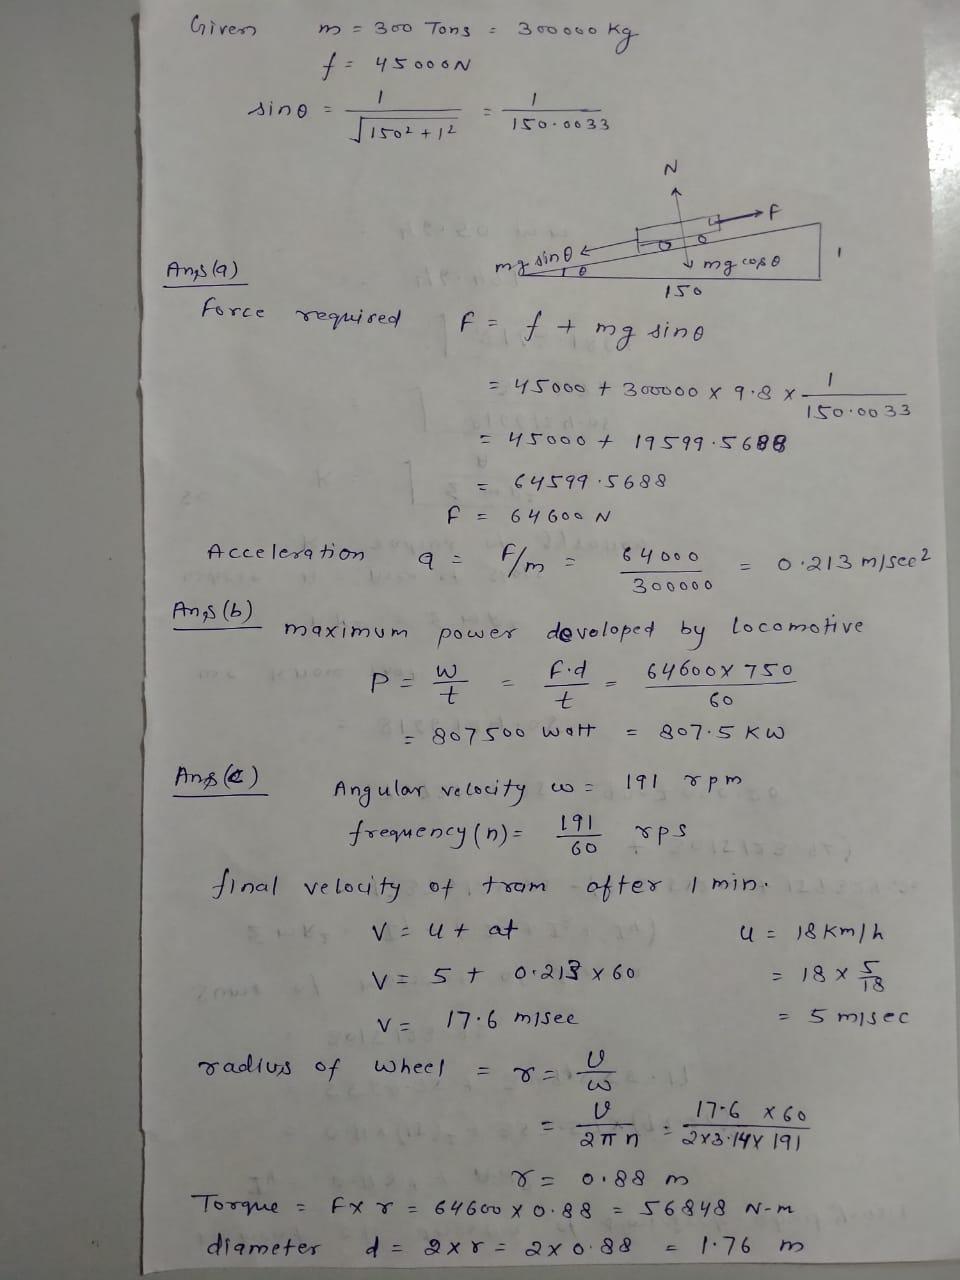 Given m = 300 Tons = 300000 Kg
f = 45000N
sinθ = 1/√(150² + 1²) = 1/150.0033
N
F
mg sinθ
θ
mg cosθ
1
150
Ans(a)
Force required F = f + mg sinθ
= 45000 + 300000 x 9.8 x 1/150.0033
= 45000 + 19599.5688
= 64599.5688
F = 64600 N
Acceleration a = F/m = 64000/300000 = 0.213 m/sec²
Ans(b)
maximum power developed by locomotive
P = W/t = F.d/t = 64600x750/60
= 807500 watt = 807.5 KW
Ans(c)
Angular velocity ω = 191 rpm
frequency(n) = 191/60 rps
final velocity of tram after 1 min.
V = u + at u = 18 Km/h
V = 5 + 0.213 x 60 = 18 x 5/18
V = 17.6 m/sec = 5 m/sec
radius of wheel = r = v/ω
= v/2πn = 17.6 x 60/2x3.14x191
r = 0.88 m
Torque = F x r = 64600 x 0.88 = 56848 N-m
diameter d = 2 x r = 2 x 0.88 = 1.76 m